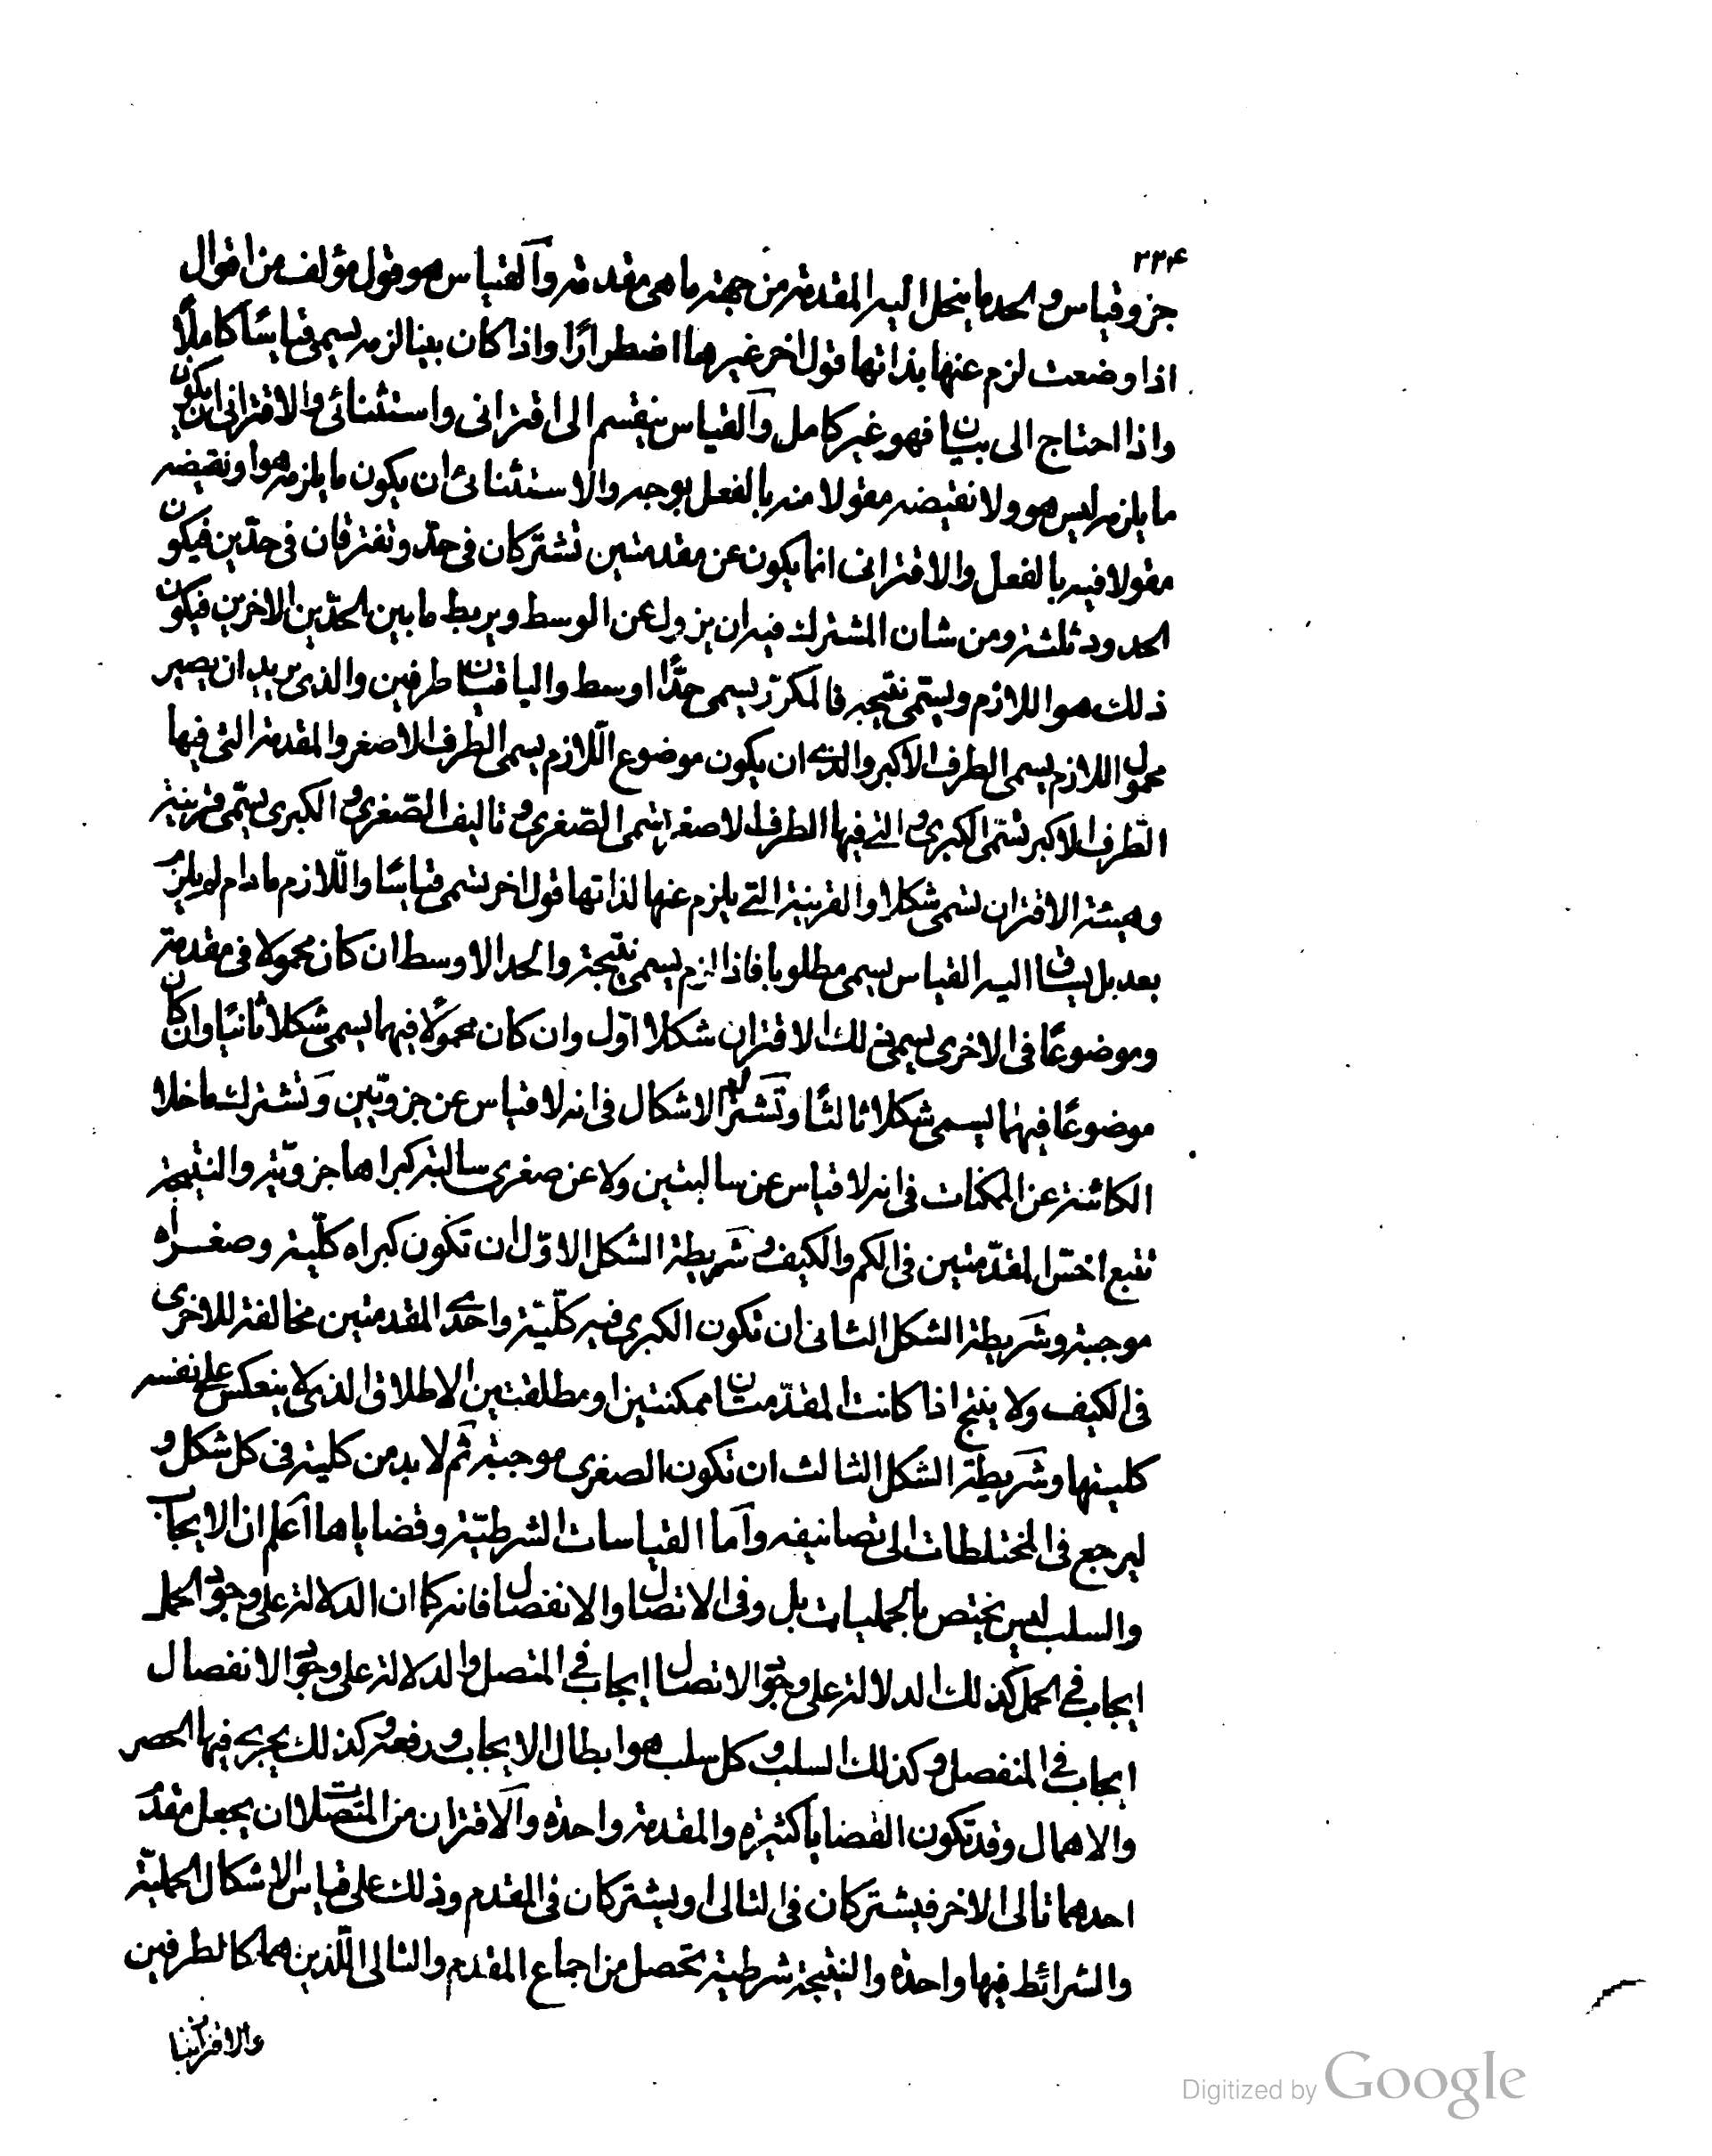 ٢٢٤
جزو قياس والحد ما ينحل اليه المقدمة من جهة ما هى مقدمة والقياس هو قول مؤلف من اقوال
اذا وضعت لزم عنها بذاتها قول اخر غيرها اضطرارًا واذا كان بينا لزمه يسمى قياسًا كاملًا
واذا احتاج الى بيان فهو غير كامل والقياس ينقسم الى اقترانى واستثنائى والاقترانى ان يكون
ما يلزمه ليس هو ولا نقيضه مقولا منه بالفعل بوجه والاستثنائى ان يكون ما يلزمه هو او نقيضه
مقولا فيه بالفعل والاقترانى انما يكون عن مقدمتين تشتركان فى حدّ وتفترقان فى حدّين فيكون
الحدود ثلثة ومن شان المشترك فيه ان يزول عن الوسط ويربط ما بين الحدّين الاخرين فيكون
ذلك هو اللازم ويسمّى نتيجة فالمكرّر يسمى حدًّا اوسط والباقيان طرفين والذى يريد ان يصير
محمول اللازم يسمى الطرف الاكبر والذى ان يكون موضوع اللّازم يسمى الطرف الاصغر والمقدمة التى فيها
الطّرف الاكبر تسمّى الكبرى والتى فيها الطرف الاصغر تسمى الصّغرى وتاليف الصّغرى والكبرى يسمّى قرينة
وهيئة الاقتران تسمى شكلا والقرينة التى يلزم عنها لذاتها قول اخر تسمى قياسًا واللّازم ما دام لم يلزم
بعد بل يساق اليه القياس يسمى مطلوبا فاذا لزم يسمى نتيجة والحد الاوسط ان كان محمولا فى مقدمة
وموضوعًا فى الاخرى يسمى ذلك الاقتران شكلا اوّل وان كان محمولًا فيهما يسمى شكلا ثانيًا وان كان
موضوعًا فيهما يسمى شكلا ثالثًا وتشترك الاشكال فى انه لا قياس عن جزويّين وتشترك ما خلا
الكائنة عن الممكنات فى انه لا قياس عن سالبتين ولا عن صغرى سالبة كبراها جزويّة والنتيجة
تتبع اخسّ المقدّمتين فى الكم والكيف وشريطة الشكل الاوّل ان تكون كبراه كلّية وصغراه
موجبة وشريطة الشكل الثانى ان تكون الكبرى فيه كلّيّة واحدى المقدمتين مخالفة للاخرى
فى الكيف ولا ينتج اذا كانت المقدّمتان ممكنتين او مطلقتين الاطلاق الذى لا ينعكس على نفسه
كليتها وشريطة الشكل الثالث ان تكون الصغرى موجبة ثم لا بد من كلية فى كل شكل و
ليرجع فى المختلطات الى تصانيفه وآما القياسات الشرطيّة وقضاياها اعلم ان الايجاب
والسلب ليس يختص بالحمليات بل وفى الاتصال والانفصال فانه كما ان الدلالة على وجود الحمل
ايجاب فى الحمل كذلك الدلالة على وجود الاتصال ايجاب فى المتصل والدلالة على وجود الانفصال
ايجاب فى المنفصل وكذلك السلب وكل سلب هو ابطال الايجاب ورفعه وكذلك يجرى فيها الحصر
والاهمال وقد تكون القضايا كثيرة والمقدمة واحدة والاقتران من المتصلات ان يجعل مقدم
احدهما تالى الاخر فيشتركان فى التالى او يشتركان فى المقدم وذلك على قياس الاشكال الحمليّة
والشرائط فيها واحدة والنتيجة شرطية تحصل من اجماع المقدم والتالى اللّذين هما كالطرفين
والاقترانيات
Digitized by Google